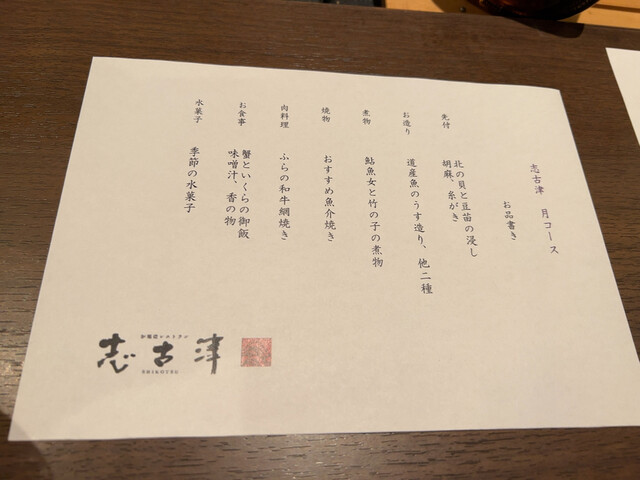 志古津　月コース
お品書き
先付
北の貝と豆苗の浸し
胡麻、糸がき
お造り
道産魚のうす造り、他二種
煮物
鮎魚女と竹の子の煮物
焼物
おすすめ魚介焼き
肉料理
ふらの和牛網焼き
お食事
蟹といくらの御飯
味噌汁、香の物
水菓子
季節の水菓子
志古津
SHIKOTSU